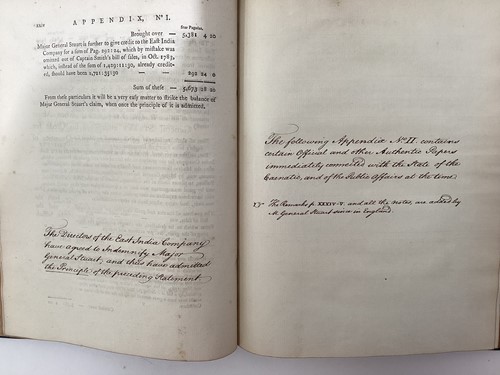 APPENDIX, Nº I.
Star Pagodas.
Brought over — 5,381 4 20
Major General Stuart is further to give credit to the East India
Company for a sum of Pag. 292:24, which by mistake was
omitted out of Captain Smith's bill of sales, in Oct. 1783,
which, instead of the sum of 1,429:11:30, already credit-
ed, should have been 1,721:35:30 — — 292 24 0
Sum of these — 5,673 28 20
From these particulars it will be a very easy matter to strike the balance of
Major General Stuart's claim, when once the principle of it is admitted.
The Directors of the East India Company
have agreed to Indemnify Major
General Stuart, and thus have admitted
the Principle of the preceding Statement
The following Appendix Nº II. contains
certain Official and other Authentic Papers
immediately connected with the State of the
Carnatic, and of the Public Affairs at the time.
The Remarks XXXIV-V. and all the Notes, are added by
M. General Stuart since in England.